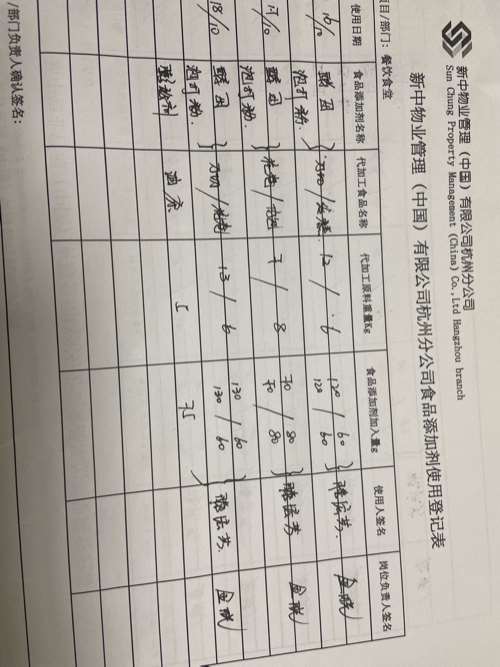 新中物业管理（中国）有限公司杭州分公司
Sun Chung Property Management (China) Co.,Ltd Hangzhou branch
新中物业管理（中国）有限公司杭州分公司食品添加剂使用登记表
项目/部门：餐饮食堂
使用日期 食品添加剂名称 代加工食品名称 代加工原料重量Kg 食品添加剂加入量g 使用人签名 岗位负责人签名
16/10 酵母 12 / 6 120 / 60
泡打粉 120 60
17/10 酵母 花卷 7 / 8 70 / 80
泡打粉 70 80
18/10 酵母 刀切/花卷 13 / 6 130 / 60
泡打粉 130 60
膨松剂 油条 5 75
/部门负责人确认签名：